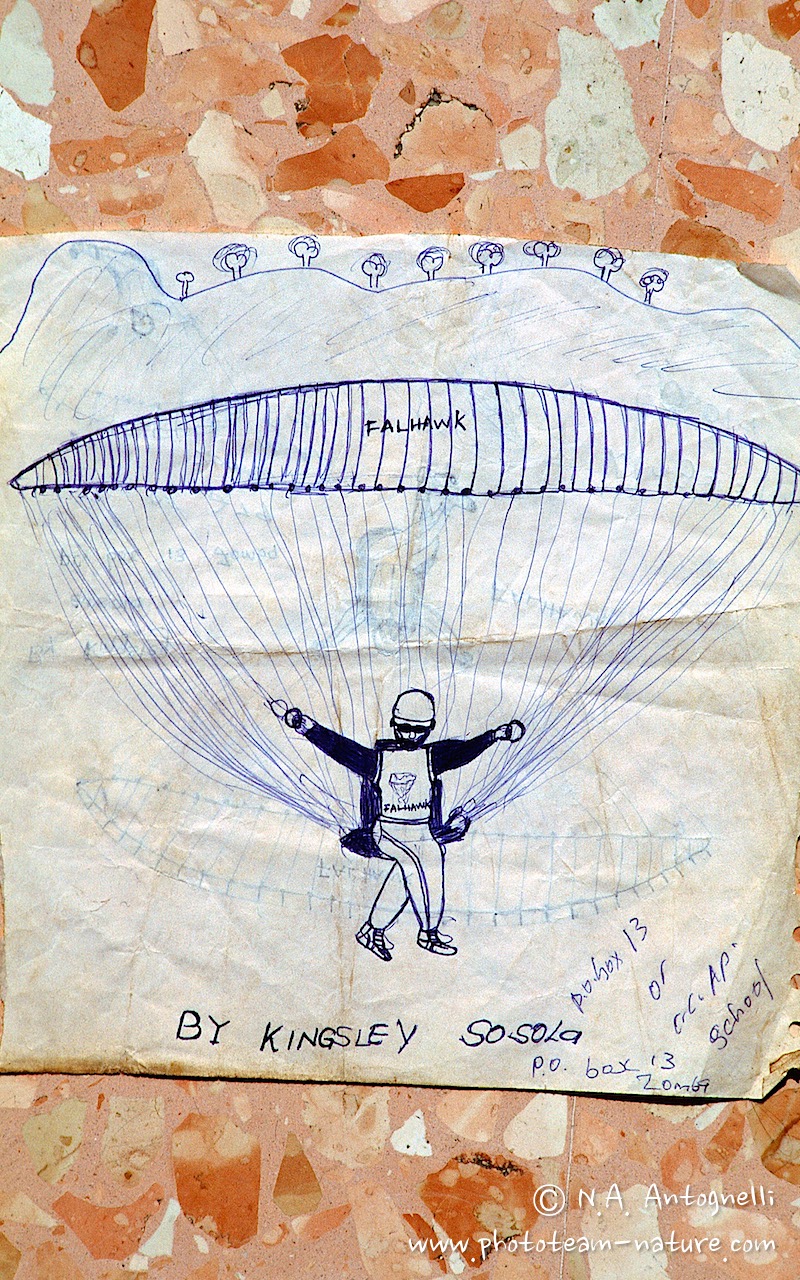 FALHAWK
FALHAWK
BY KINGSLEY SOSOLA
P.O. box 13
Zomba
p.o.box 13
or
school
© N.A. Antognelli
www.phototeam-nature.com